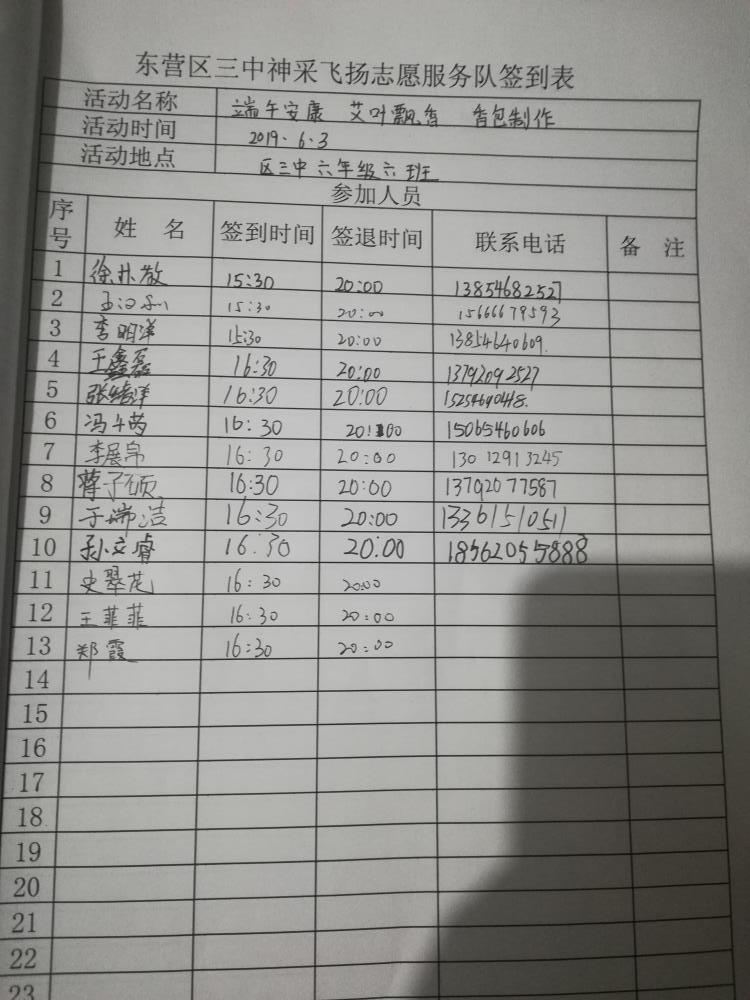 东营区三中神采飞扬志愿服务队签到表
活动名称 端午安康 艾叶飘香 香包制作
活动时间 2019.6.3
活动地点 区三中六年级六班
参加人员
序号 姓 名 签到时间 签退时间 联系电话 备 注
1 15:30 20:00 13854682527
2 15:30 20:00 15666679593
3 李明洋 15:30 20:00 13854640609.
4 王鑫磊 16:30 20:00 13792092527
5 16:30 20:00 15254690418.
6 16:30 20:00 15065460606
7 李展帛 16:30 20:00 13012913245
8 蒋子硕 16:30 20:00 13792077587
9 于瑞洁 16:30 20:00 13361510511
10 孙文睿 16:30 20:00 18562055888
11 史翠花 16:30 20:00
12 王菲菲 16:30 20:00
13 郑霞 16:30 20:00
14
15
16
17
18
19
20
21
22
23